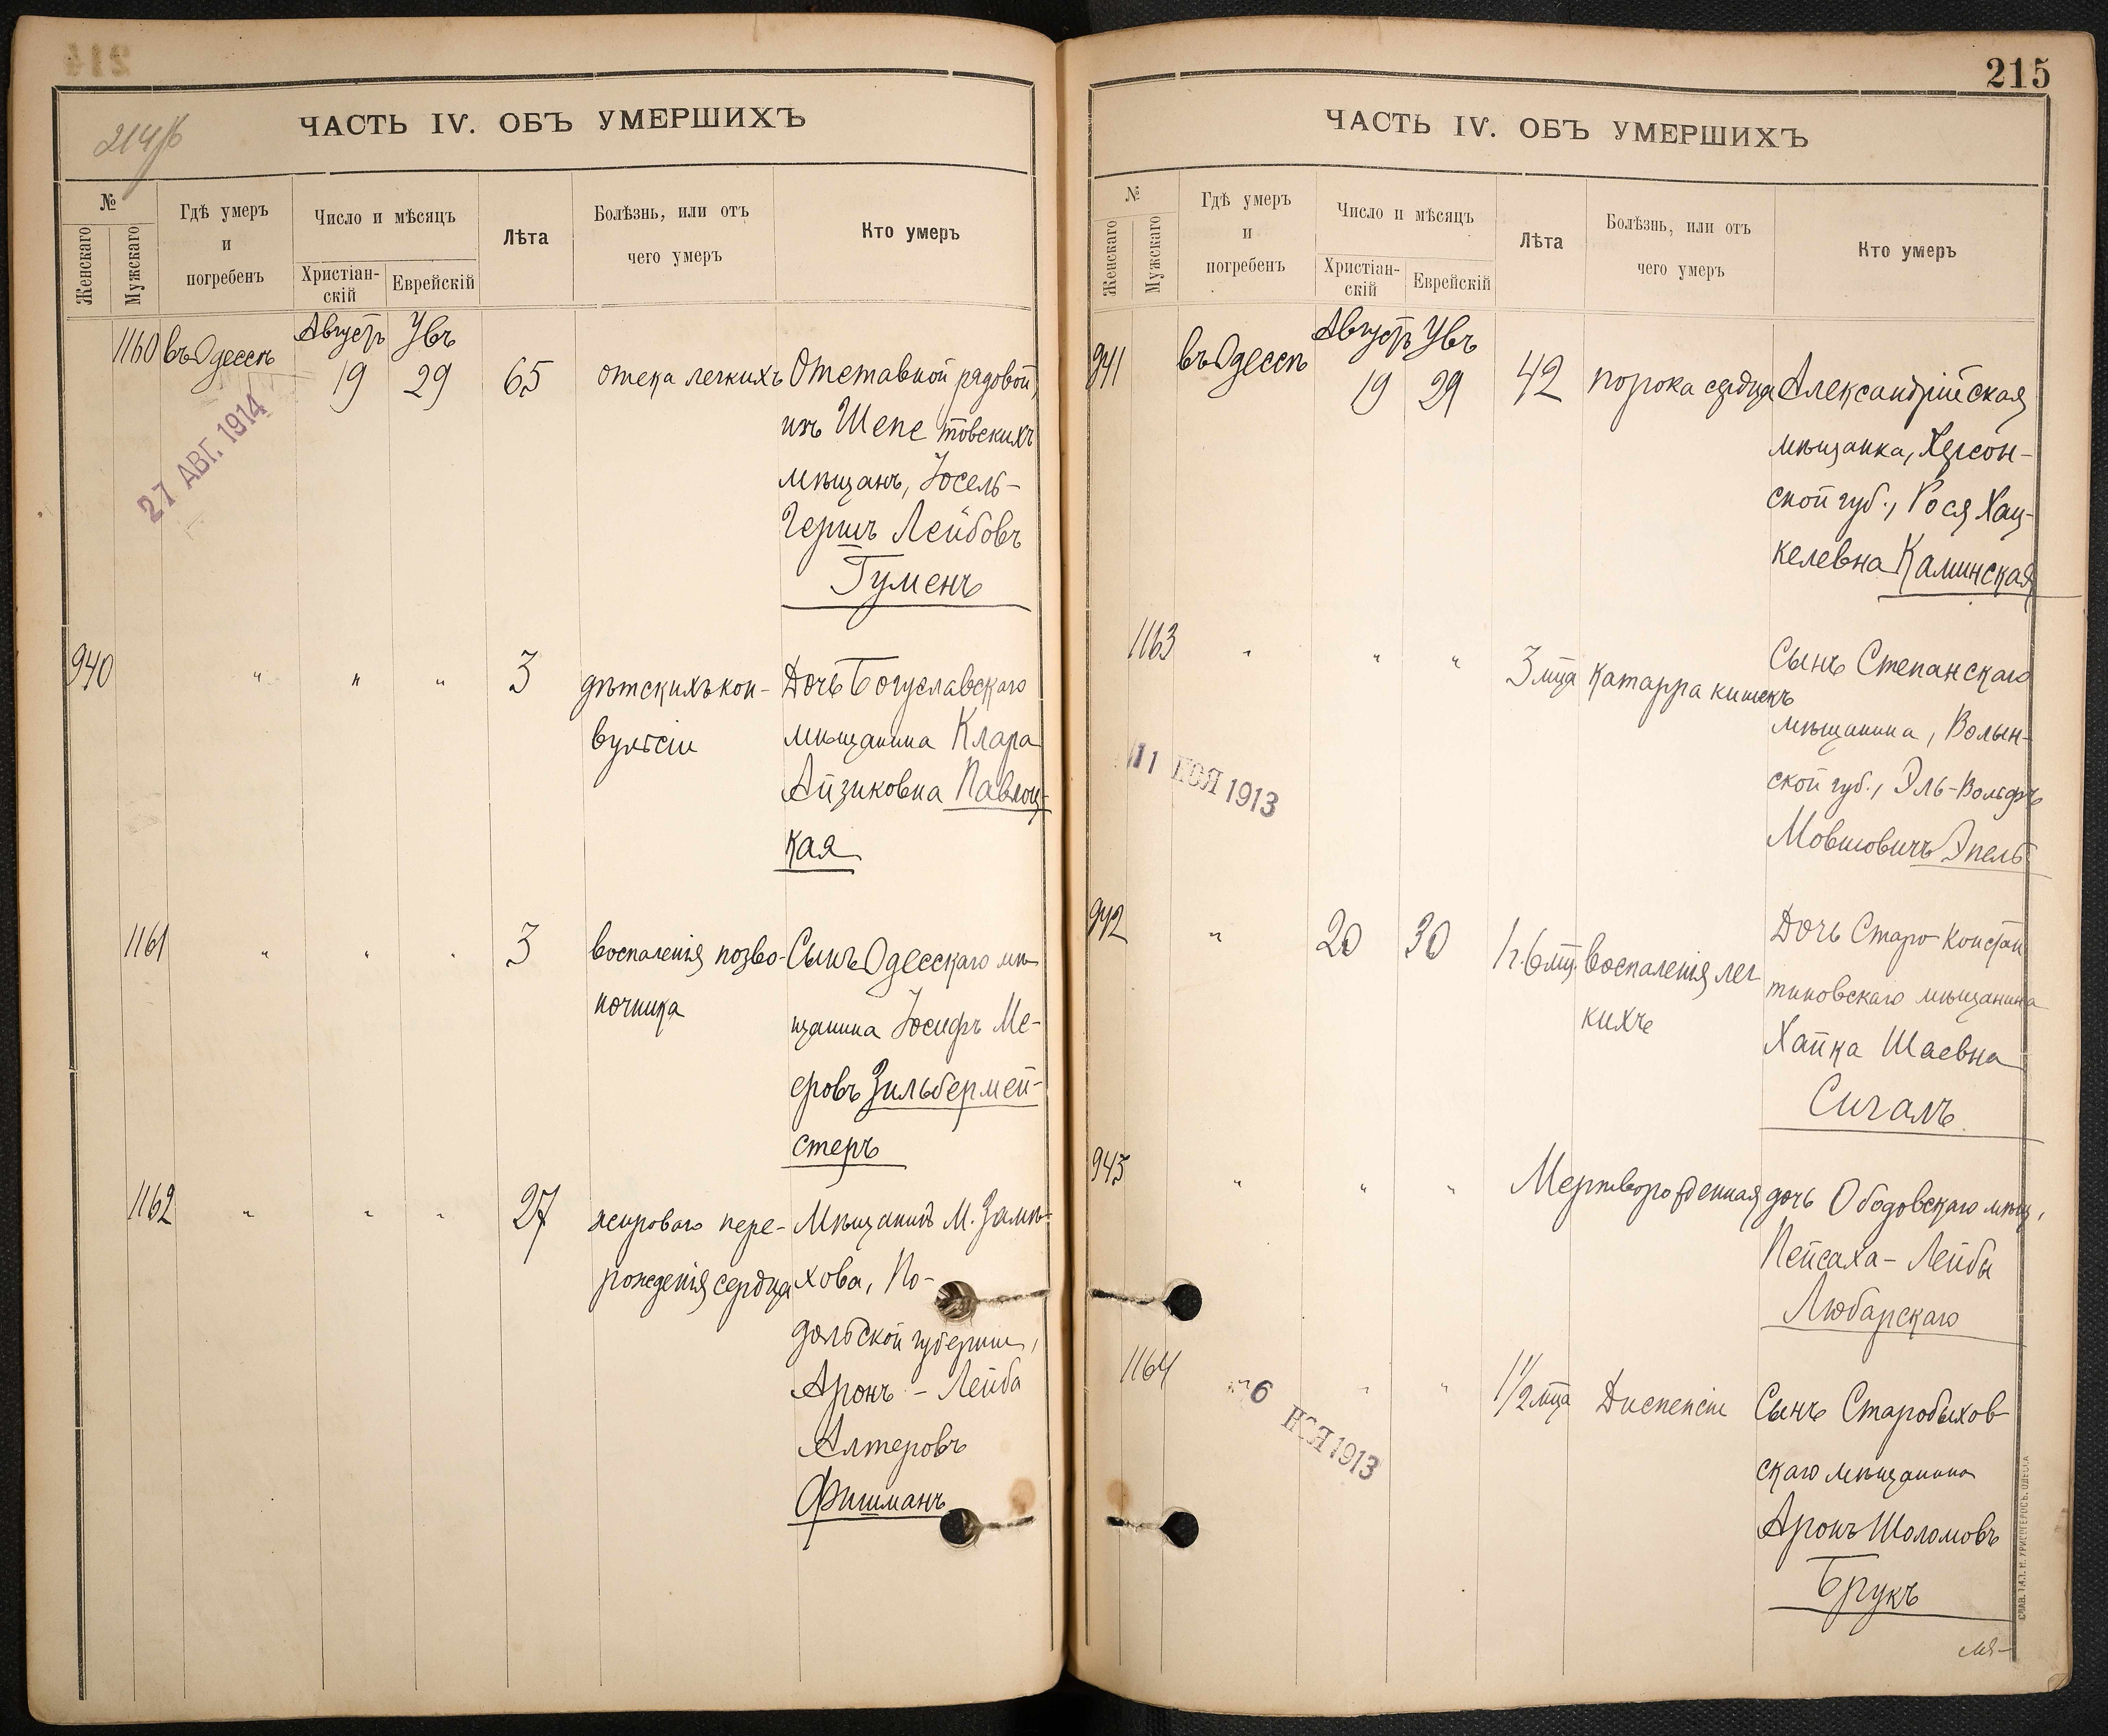 214
ЧАСТЬ IV. ОБЪ УМЕРШИХЪ
№
Женскаго
Мужскаго
Гдѣ умеръ
и
погребенъ
Число и мѣсяцъ
Христіан-
скій
Еврейскій
Лѣта
Болѣзнь, или отъ
чего умеръ
Кто умеръ
1160 въ Одессѣ Августъ 19 Увъ 29 65 отека легкихъ Отставной рядовой,
изъ Шепетовскихъ
мѣщанъ, Іосель-
Гершъ Лейбовъ
Гуменъ
27 АВГ. 1914
940 " " " 3 дѣтскихъ кон- Дочь Богуславскаго
вульсіи мѣщанина Клара
Айзиковна Павлоц-
кая
1161 " " " 3 воспаленія позво- Сынъ Одесскаго мѣ-
ночника щанина Іосифъ Ме-
еровъ Зильбермей-
стеръ
1162 " " " 27 жирового пере- Мѣщанинъ М. Замѣ-
рожденія сердца хова, По-
дольской губерніи,
Аронъ - Лейба
Алтеровъ
Фишманъ
215
ЧАСТЬ IV. ОБЪ УМЕРШИХЪ
№
Женскаго
Мужскаго
Гдѣ умеръ
и
погребенъ
Число и мѣсяцъ
Христіан-
скій
Еврейскій
Лѣта
Болѣзнь, или отъ
чего умеръ
Кто умеръ
941 въ Одессѣ Августъ 19 Увъ 29 42 порока сердца Александрійская
мѣщанка, Херсон-
ской губ., Рося Хац-
келевна Каминская
1163 " " " 3 мца катарра кишекъ Сынъ Степанскаго
мѣщанина, Волын-
ской губ., Эль-Вольфъ
Мовшовичъ Эпель
11 НОЯ 1913
942 " 20 30 1 г. 6 мц. воспаленія лег- Дочь Старо-Констан
кихъ тиновскаго мѣщанина
Хайка Шаевна
Сигалъ.
943 " " " Мертворожденная дочь Ободовскаго мѣщ.
Пейсаха - Лейбы
Любарскаго
1164 " " " 1 1/2 мца Диспепсіи Сынъ Старобыхов-
скаго мѣщанина
Аронъ Шоломовъ
Брукъ
6 НОЯ 1913